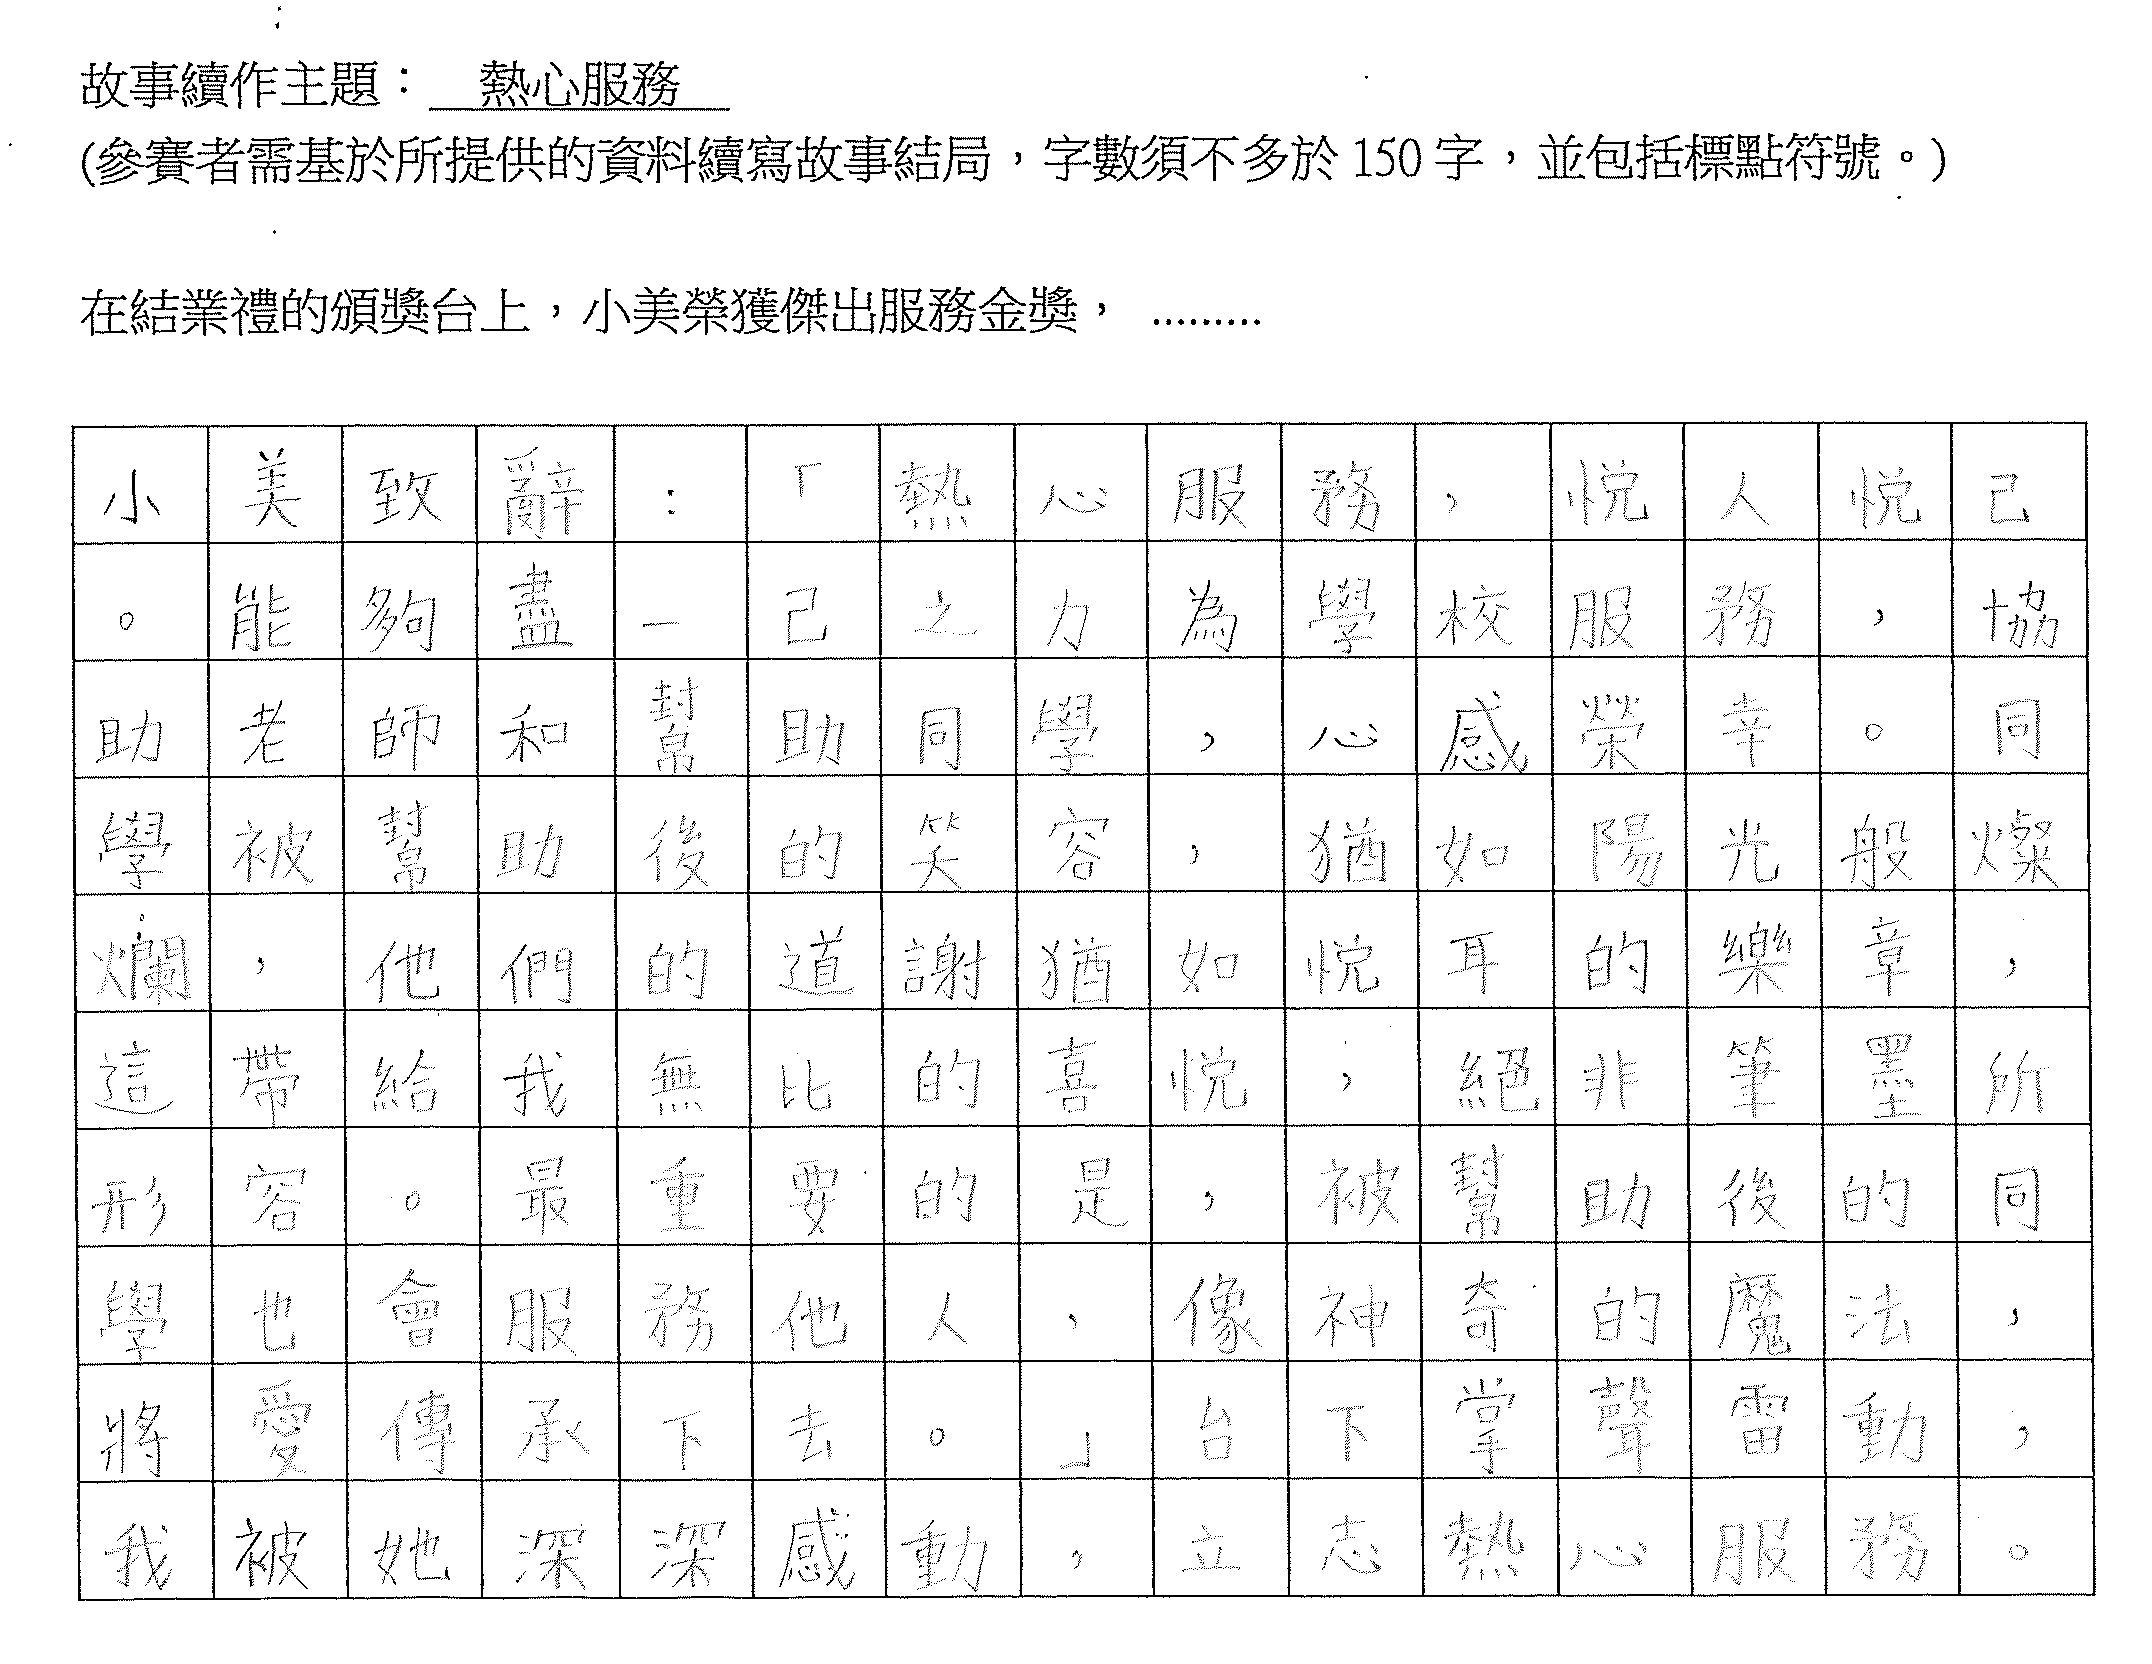 故事續作主題：　熱心服務
(參賽者需基於所提供的資料續寫故事結局，字數須不多於 150 字，並包括標點符號。)
在結業禮的頒獎台上，小美榮獲傑出服務金獎， .........
小美致辭：「熱心服務，悅人悅己
。能夠盡一己之力為學校服務，協
助老師和幫助同學，心感榮幸。同
學被幫助後的笑容，猶如陽光般燦
爛，他們的道謝猶如悅耳的樂章，
這帶給我無比的喜悅，絕非筆墨所
形容。最重要的是，被幫助後的同
學也會服務他人，像神奇的魔法，
將愛傳承下去。」台下掌聲雷動，
我被她深深感動，立志熱心服務。